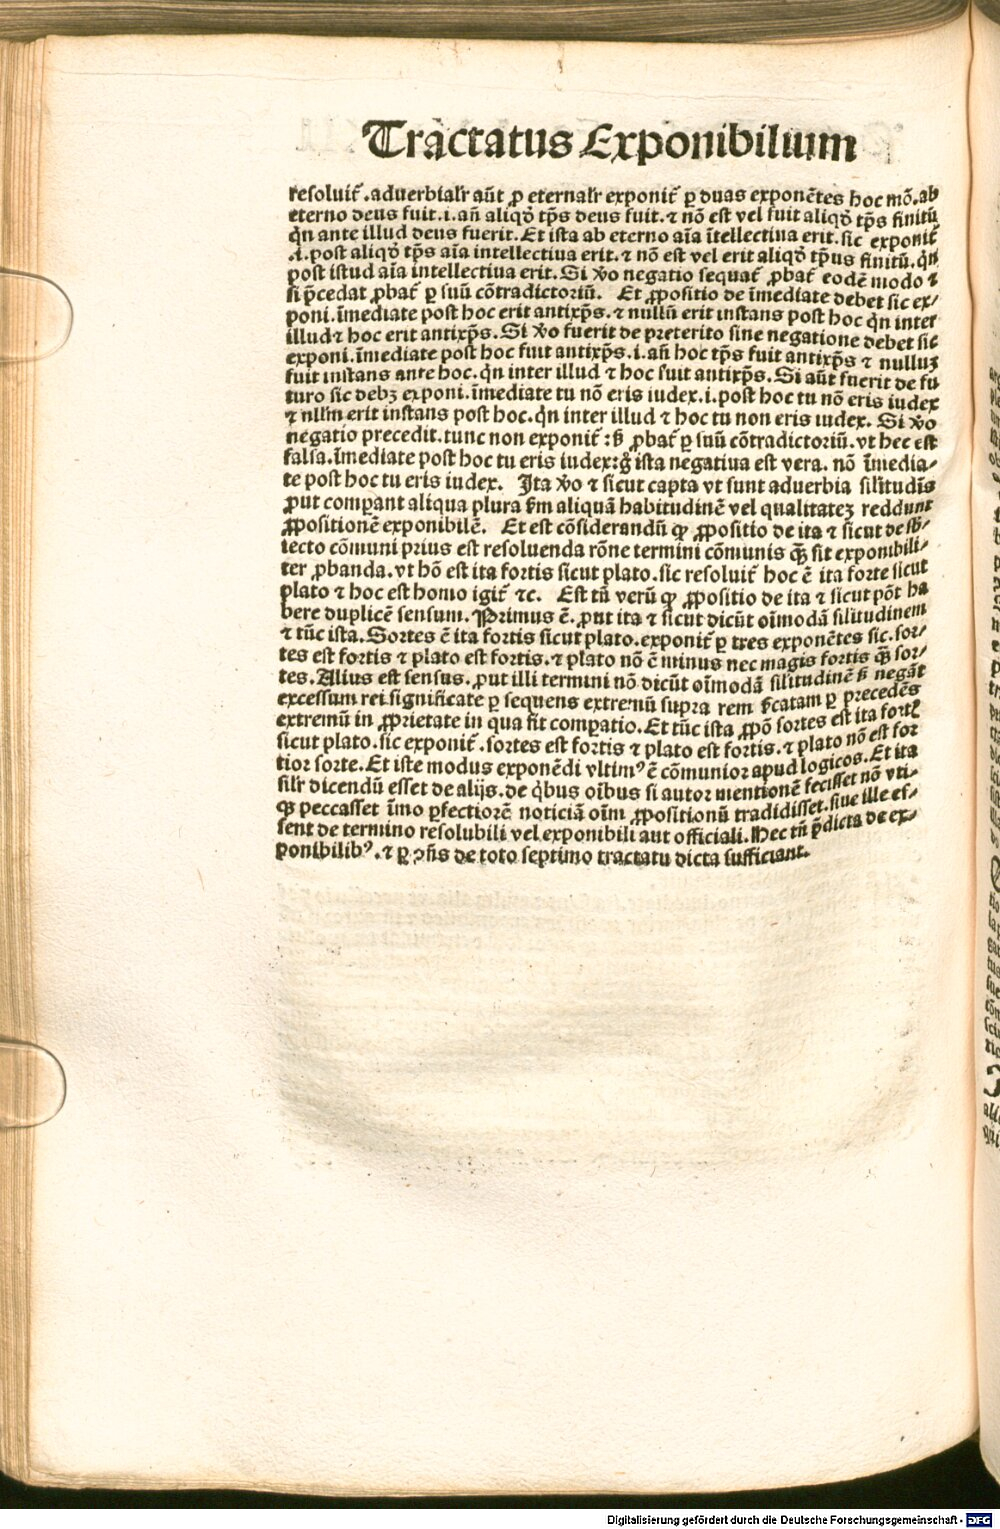 Tractatus Exponibilium
resoluit᷑.aduerbialr̄ aūt ꝓ eternalr̄ exponit᷑ ꝑ duas exponētes hoc mō.ab
eterno deus fuit.i.añ aliqḋ tp̄s deus fuit.⁊ nō est vel fuit aliqḋ tp̄s finitū
qn̄ ante illud deus fuerit.Et ista ab eterno aīa ītellectiua erit.sic exponit᷑
.i.post aliqḋ tp̄s aīa intellectiua erit.⁊ nō est vel erit aliqḋ tp̄us finitū.qn̄
post istud aīa intellectiua erit.Si v̊o negatio sequat᷑ ꝓbat᷑ eodē modo ⁊
si p̄cedat ꝓbat᷑ ꝑ suū cōtradictoriū. Et ꝓpositio de īmediate debet sic ex/
poni.īmediate post hoc erit antixp̄s.⁊ nullū erit instans post hoc qn̄ inter
illud ⁊ hoc erit antixp̄s.Si v̊o fuerit de preterito sine negatione debet sic
exponi.īmediate post hoc fuit antixp̄s.i.añ hoc tp̄s fuit antixp̄s ⁊ nulluꝫ
fuit instans ante hoc.qn̄ inter illud ⁊ hoc fuit antixp̄s.Si aūt fuerit de fu
turo sic debꝫ exponi.īmediate tu nō eris iudex.i.post hoc tu nō eris iudex
⁊ nllm̄ erit instans post hoc.qn̄ inter illud ⁊ hoc tu non eris iudex. Si v̊o
negatio precedit.tunc non exponit᷑ :ß ꝓbat᷑ ꝑ suū cōtradictoriū.vt hec est
falsa.īmediate post hoc tu eris iudex:g̊ ista negatiua est vera. nō īmedia/
te post hoc tu eris iudex. Ita v̊o ⁊ sicut capta vt sunt aduerbia silitudīs
ꝓut compant aliqua plura ẜm aliquā habitudinē vel qualitateꝫ reddunt
ꝓpositionē exponibilē. Et est cōsiderandū ꝙ ꝓpositio de ita ⁊ sicut de sb̄/
iecto cōmuni prius est resoluenda rōne termini cōmunis q̄ꝫ sit exponibili/
ter ꝓbanda.vt hō est ita fortis sicut plato.sic resoluit᷑ hoc ē ita forte sicut
plato ⁊ hoc est homo igit᷑ ⁊c. Est tn̄ verū ꝙ ꝓpositio de ita ⁊ sicut pōt ha
bere duplicē sensum. Primus ē. ꝓut ita ⁊ sicut dicūt oīmodā silitudinem
⁊ tūc ista.Sortes ē ita fortis sicut plato.exponit᷑ ꝑ tres exponētes sic.sor/
tes est fortis ⁊ plato est fortis.⁊ plato nō ē minus nec magis fortis q̄ꝫ sor/
tes.Alius est sensus.ꝓut illi termini nō dicūt oīmodā silitudinē ß negāt
excessum rei significate ꝑ sequens extremū supra rem ẜcatam ꝑ precedēs
extremū in ꝓprietate in qua fit compatio.Et tūc ista ꝓpō sortes est ita fort᷑
sicut plato.sic exponit᷑.sortes est fortis ⁊ plato est fortis.⁊ plato nō est for
tior sorte.Et iste modus exponēdi vltimꝰ ē cōmunior apud logicos.Et ita
silr̄ dicendū esset de alijs.de qbus oībus si autor mentionē fecisset nō vti/
ꝙ peccasset īmo ꝑfectiorē noticiā oīm ꝓpositionū tradidisset.siue ille es/
sent de termino resolubili vel exponibili aut officiali.Hec tn̄ p̄dicta de ex/
ponibilibꝰ.⁊ ꝑ ꝯn̄s de toto septimo tractatu dicta sufficiant.
Digitalisierung gefördert durch die Deutsche Forschungsgemeinschaft - DFG